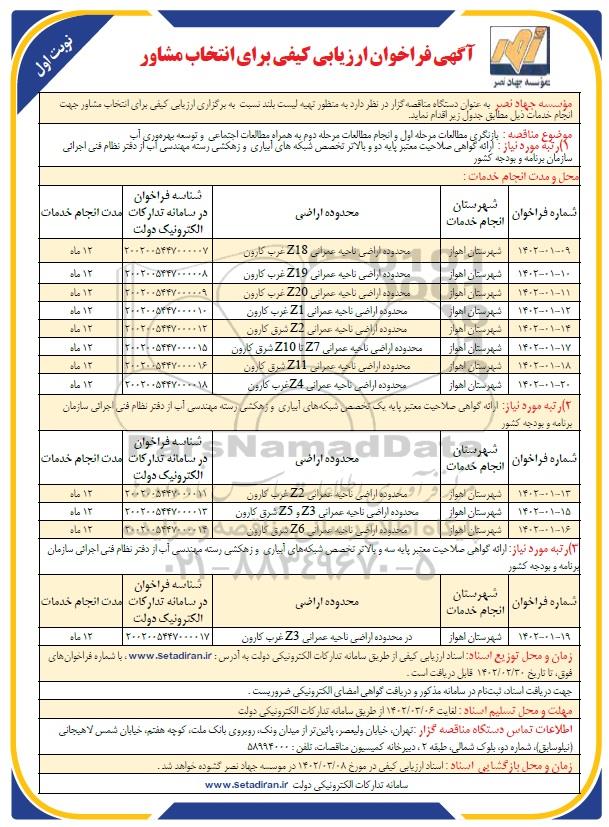 نوبت اول
آگهی فراخوان ارزیابی کیفی برای انتخاب مشاور
موسسه جهاد نصر
مؤسسه جهاد نصر به عنوان دستگاه مناقصه‌گزار در نظر دارد به منظور تهیه لیست بلند نسبت به برگزاری ارزیابی کیفی برای انتخاب مشاور جهت
انجام خدمات ذیل مطابق جدول زیر اقدام نماید.
موضوع مناقصه : بازنگری مطالعات مرحله اول و انجام مطالعات مرحله دوم به همراه مطالعات اجتماعی و توسعه بهره‌وری آب
۱)رتبه مورد نیاز : ارائه گواهی صلاحیت معتبر پایه دو و بالاتر تخصص شبکه های آبیاری و زهکشی رسته مهندسی آب از دفتر نظام فنی اجرائی
سازمان برنامه و بودجه کشور
محل و مدت انجام خدمات :
شماره فراخوان شهرستان انجام خدمات محدوده اراضی شناسه فراخوان در سامانه تدارکات الکترونیک دولت مدت انجام خدمات
۱۴۰۲-۰۱-۰۹ شهرستان اهواز محدوده اراضی ناحیه عمرانی Z18 غرب کارون ۲۰۰۲۰۰۵۴۴۷۰۰۰۰۰۷ ۱۲ ماه
۱۴۰۲-۰۱-۱۰ شهرستان اهواز محدوده اراضی ناحیه عمرانی Z19 غرب کارون ۲۰۰۲۰۰۵۴۴۷۰۰۰۰۰۸ ۱۲ ماه
۱۴۰۲-۰۱-۱۱ شهرستان اهواز محدوده اراضی ناحیه عمرانی Z20 غرب کارون ۲۰۰۲۰۰۵۴۴۷۰۰۰۰۰۹ ۱۲ ماه
۱۴۰۲-۰۱-۱۲ شهرستان اهواز محدوده اراضی ناحیه عمرانی Z1 غرب کارون ۲۰۰۲۰۰۵۴۴۷۰۰۰۰۱۰ ۱۲ ماه
۱۴۰۲-۰۱-۱۴ شهرستان اهواز محدوده اراضی ناحیه عمرانی Z2 شرق کارون ۲۰۰۲۰۰۵۴۴۷۰۰۰۰۱۲ ۱۲ ماه
۱۴۰۲-۰۱-۱۷ شهرستان اهواز محدوده اراضی ناحیه عمرانی Z7 تا Z10 شرق کارون ۲۰۰۲۰۰۵۴۴۷۰۰۰۰۱۵ ۱۲ ماه
۱۴۰۲-۰۱-۱۸ شهرستان اهواز محدوده اراضی ناحیه عمرانی Z11 شرق کارون ۲۰۰۲۰۰۵۴۴۷۰۰۰۰۱۶ ۱۲ ماه
۱۴۰۲-۰۱-۲۰ شهرستان اهواز محدوده اراضی ناحیه عمرانی Z4 غرب کارون ۲۰۰۲۰۰۵۴۴۷۰۰۰۰۱۸ ۱۲ ماه
۲)رتبه مورد نیاز: ارائه گواهی صلاحیت معتبر پایه یک تخصص شبکه‌های آبیاری و زهکشی رسته مهندسی آب از دفتر نظام فنی اجرائی سازمان
برنامه و بودجه کشور
شماره فراخوان شهرستان انجام خدمات محدوده اراضی شناسه فراخوان در سامانه تدارکات الکترونیک دولت مدت انجام خدمات
۱۴۰۲-۰۱-۱۳ شهرستان اهواز محدوده اراضی ناحیه عمرانی Z2 غرب کارون ۲۰۰۲۰۰۵۴۴۷۰۰۰۰۱۱ ۱۲ ماه
۱۴۰۲-۰۱-۱۵ شهرستان اهواز محدوده اراضی ناحیه عمرانی Z3 و Z5 شرق کارون ۲۰۰۲۰۰۵۴۴۷۰۰۰۰۱۳ ۱۲ ماه
۱۴۰۲-۰۱-۱۶ شهرستان اهواز محدوده اراضی ناحیه عمرانی Z6 شرق کارون ۲۰۰۲۰۰۵۴۴۷۰۰۰۰۱۴ ۱۲ ماه
۳)رتبه مورد نیاز: ارائه گواهی صلاحیت معتبر پایه سه و بالاتر تخصص شبکه‌های آبیاری و زهکشی رسته مهندسی آب از دفتر نظام فنی اجرائی سازمان
برنامه و بودجه کشور
شماره فراخوان شهرستان انجام خدمات محدوده اراضی شناسه فراخوان در سامانه تدارکات الکترونیک دولت مدت انجام خدمات
۱۴۰۲-۰۱-۱۹ شهرستان اهواز در محدوده اراضی ناحیه عمرانی Z3 غرب کارون ۲۰۰۲۰۰۵۴۴۷۰۰۰۰۱۷ ۱۲ ماه
زمان و محل توزیع اسناد: اسناد ارزیابی کیفی از طریق سامانه تدارکات الکترونیکی دولت به آدرس : www.Setadiran.ir ، با شماره فراخوان‌های
فوق، تا تاریخ ۱۴۰۲/۰۲/۳۰ قابل دریافت است .
جهت دریافت اسناد، ثبت‌نام در سامانه مذکور و دریافت گواهی امضای الکترونیکی ضروریست .
مهلت و محل تسلیم اسناد : لغایت ۱۴۰۲/۰۳/۰۶ از طریق سامانه تدارکات الکترونیکی دولت
اطلاعات تماس دستگاه مناقصه گزار :تهران، خیابان ولیعصر، پائین‌تر از میدان ونک، روبروی بانک ملت، کوچه هفتم، خیابان شمس لاهیجانی
(نیلوسابق)، شماره دو، بلوک شمالی، طبقه ۲ ، دبیرخانه کمیسیون مناقصات، تلفن : ۵۸۹۹۴۰۰۰
زمان و محل بازگشایی اسناد : اسناد ارزیابی کیفی در مورخ ۱۴۰۲/۰۳/۰۸ در موسسه جهاد نصر گشوده خواهد شد .
سامانه تدارکات الکترونیکی دولت www.setadiran.ir
ParsNamadData
۰۲۱-۸۸۳۴۹۶۷۰-۵